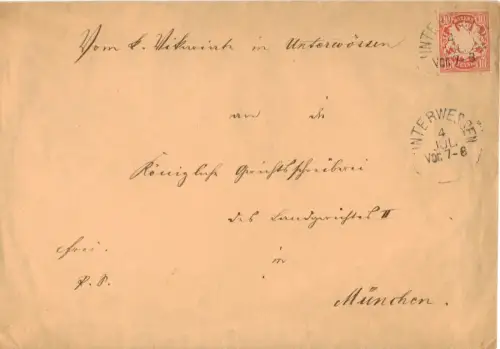 Vom k. Vikariate in Unterwössen
an die
Königliche Gerichtsschreiberei
des Landgerichtes II
in
München.
frei.
P. P.
10 10
UNTERWESSEN
4
JUL
VOR. 7-8
UNTERWESSEN
4
JUL
VOR. 7-8